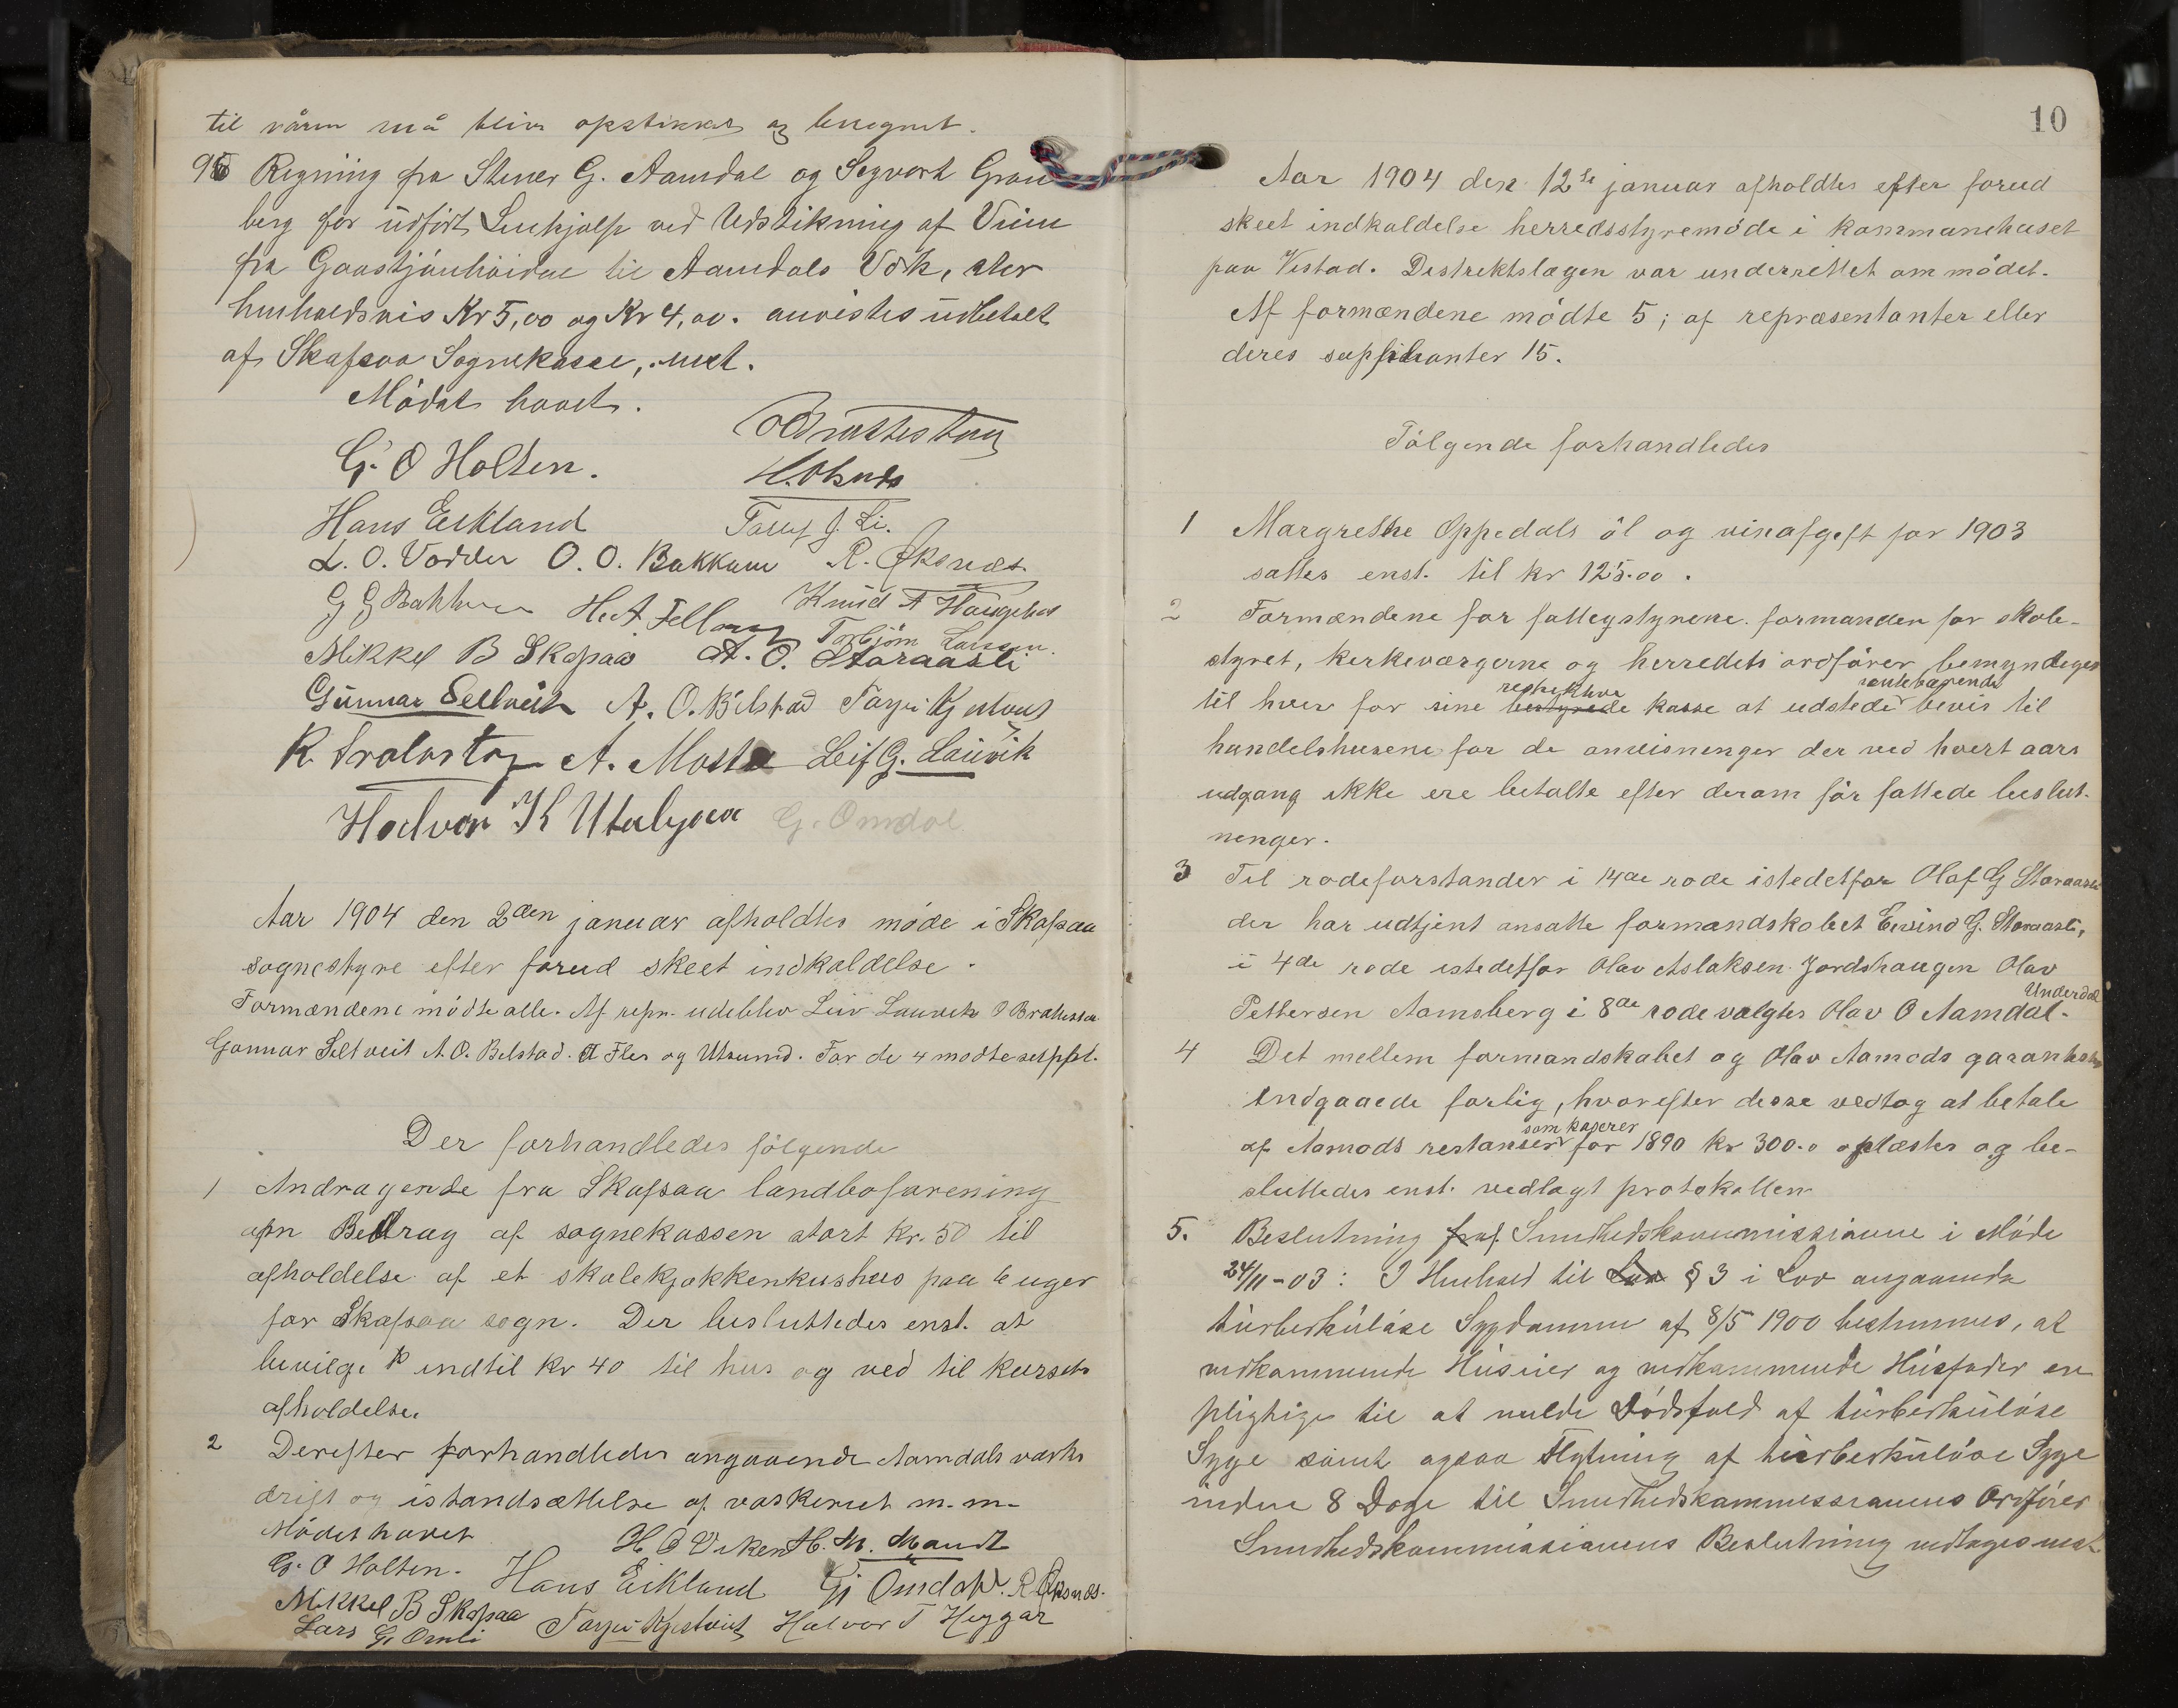 til våren må blive opstikket og beregnet.
96 Regning fra Stener G. Aamdal og Segvort Grau
berg for udført Lenhjælp ved Udstikning af Veien
fra Gaastjönhöidne til Aamdals Værk, eller
henholdsvis Kr 5,00 og Kr 4,00. anvistes udbetalt
af Skafsaa Sognekasse, enst.
Mödet hævet.
G. O Holten.
Hans Eikland Tallef J. Li.
L. O. Vodder O. O. Bakkane R. Öksnes
G G Bakkane Knud A Haugebak
Torbjörn Larsen.
Mikkel B Skafsaa A. O. Storaasli
Gunnar Seltveit A. O. Bilstad Tarjei Kjetveit
A. Mosta Leif G. Lauvik
Halvor K Utabyaa G. Omdal
Aar 1904 den 2den januar afholdtes möde i Skafsaa
sognestyre efter forud skeet indkaldelse.
Formændene mödte alle. Af repr. udeblev Leiv Lauvik O Brattestaa
Gunnar Seltveit A. O. Belstad. A Fler og Utsund. For de 4 mödte suppl.
Der forhandledes fölgende
1 Andragende fra Skafsaa landboforening
om Bedrag af sognekassen stort kr. 50 til
afholdelse af et skolekjøkkenkushus paa 6 uger
for Skafsaa sogn. Der besluttedes enst. at
bevilge indtil kr 40 til hus og ved til kursets
afholdelse.
2 Derefter forhandledes angaaende Aamdals værks
drift og istandsættelse af vaskeriet m. m.
Mödet hævet
H O Veken H. M. Mandt
G. O Holten. Hans Eikland Gj Omdahl. R Öksnes.
Mikkel B Skafsaa
Lars G. Omli Tarjei Kjetveit Halvor T Heggar
10
Aar 1904 den 12te januar afholdtes efter forud
skeet indkaldelse herredsstyremöde i kommunehuset
paa Vistad. Destriktslægen var underrettet om mödet.
Af formændene mödte 5; af repræsentanter eller
deres suppleanter 15.
Fölgende forhandledes
1 Margrethe Oppedals öl og vinafgift for 1903
sattes enst. til kr 125.00.
2 Formændene for fattegstyrene. formanden for skole-
styret, kerkeværgerne og herredets ordförer bemyndeges
til hver for sine respektive bestyrede kasse at udstede rentebærende bevis til
handelshusene for de anvisninger der ved hvert aars
udgang ikke ere betalte efter derom för fattede beslut-
nenger.
3 Til rodeforstander i 14de rode istedetfor Olaf G Storaasli
der har udtjent ansatte formandskabet Eivind G. Storaasli,
i 4de rode istedetfor Olav Aslaksen Jordshaugen Olav
Pettersen Aamsberg i 8de rode valgtes Olav O Aamdal. Underdal
4 Det mellem formandskabet og Olav Aamods garantister
indgaaede forlig, hvorefter desse vedtog at betale
af Aamods restanser som kaserer for 1890 kr 300.0 oplæstes og be-
sluttedes enst. vedlagt protokollen
5. Beslutning fra af Sundhedskommissionen i Möde
24/11-03: I Henhold til Lov § 3 i Lov angaaende
tuberkulöse Sygdomme af 8/5 1900 bestemmes, at
vedkommende Huseier og vedkommende Husfader er
pligtige til at melde Dödsfald af tuberkulöse
Syge samt ogsaa Flytning af tuberkulöse Syge
inden 8 Dage til Sundhedskommissionens Ordförer
Sundhedskommissionens Beslutning vedtages enst